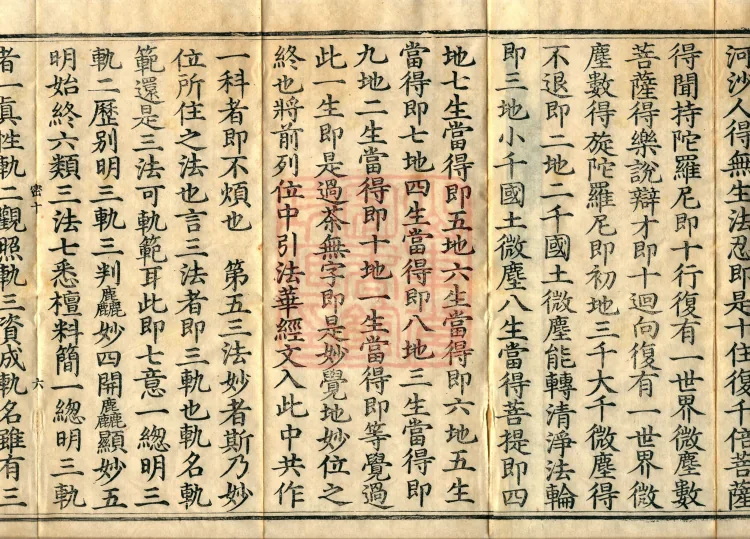 河沙人得無生法忍即是十住復千倍菩薩
得聞持陀羅尼即十行復有一世界微塵數
菩薩得樂說辯才即十迴向復有一世界微
塵數得旋陀羅尼即初地三千大千微塵得
不退即二地二千國土微塵能轉清淨法輪
即三地小千國土微塵八生當得菩提即四
地七生當得即五地六生當得即六地五生
當得即七地四生當得即八地三生當得即
九地二生當得即十地一生當得即等覺過
此一生即是過茶無字即是妙覺地妙位之
終也將前列位中引法華經文入此中共作
一科者即不煩也　第五三法妙者斯乃妙
位所住之法也言三法者即三軌也軌名軌
範還是三法可軌範耳此即七意一緫明三
軌二歷別明三軌三判麤妙四開麤顯妙五
明始終六類三法七悉檀料簡一緫明三軌
密十 六
者一真性軌二觀照軌三資成軌名雖有三